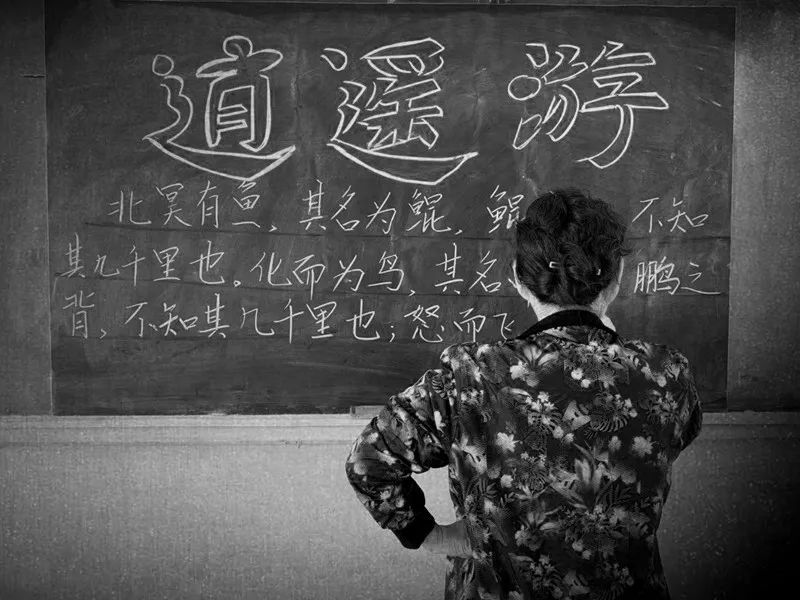 逍遥游
北冥有鱼，其名为鲲，鲲 不知
其几千里也。化而为鸟，其名 鹏之
背，不知其几千里也；怒而飞